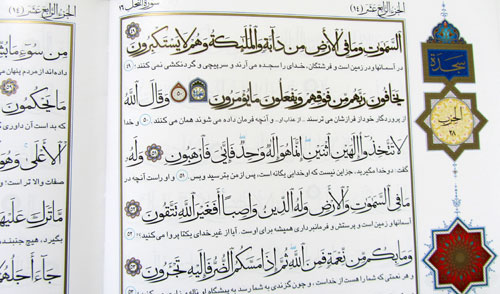 الجزء الرابع عشر (١٤)
سورة النحل ١٦
السَّمٰوٰتِ وَمَا فِي الْأَرْضِ مِن دَابَّةٍ وَالْمَلٰئِكَةُ وَهُمْ لَا يَسْتَكْبِرُونَ ٤٩
در آسمانها و در زمین است و فرشتگان، خدای را سجده می آرند و سرپیچی و گردنکشی نمی کنند؛ ٤٩
يَخَافُونَ رَبَّهُم مِن فَوْقِهِمْ وَيَفْعَلُونَ مَا يُؤْمَرُونَ ٥٠ وَقَالَ اللّٰهُ
از پروردگار خود بر فرازشان می ترسند و آنچه فرمان داده می شوند همان می کنند ٥٠ و خدا
لَا تَتَّخِذُوا إِلٰهَيْنِ اثْنَيْنِ إِنَّمَا هُوَ إِلٰهٌ وَاحِدٌ فَإِيّٰيَ فَارْهَبُونِ ٥١ وَلَهُ
گفت: دو خدا مگیرید، جز این نیست که او خدایی یگانه است، پس از من بترسید و بس ٥١ و او راست آنچه در
مَا فِي السَّمٰوٰتِ وَالْأَرْضِ وَلَهُ الدِّينُ وَاصِبًا أَفَغَيْرَ اللّٰهِ تَتَّقُونَ ٥٢
آسمانها و زمین است و پرستش و فرمانبرداری همیشه برای اوست. آیا از غیر خدای یکتا پروا می کنید؟ ٥٢
وَمَا بِكُم مِن نِعْمَةٍ فَمِنَ اللّٰهِ ثُمَّ إِذَا مَسَّكُمُ الضُّرُّ فَإِلَيْهِ تَجْـَٔرُونَ ٥٣
و هر نعمتی که شما را هست از خداست، و چون گزندی به شما رسد به پیشگاه او
سجدة
الحزب
٢٨
الجزء الرابع عشر (١٤)
مِن سُوءِ مَا
داده اند از مردم پنهان می
مَا يَحْكُمُونَ
که بد است آن داوری که
الْأَعْلَىٰ وَهُوَ
صفات والا تر است؛ و
مَا تَرَكَ عَلَيْهَا
بگیرد، هیچ جنبنده
جَاءَ أَجَلُهُمْ